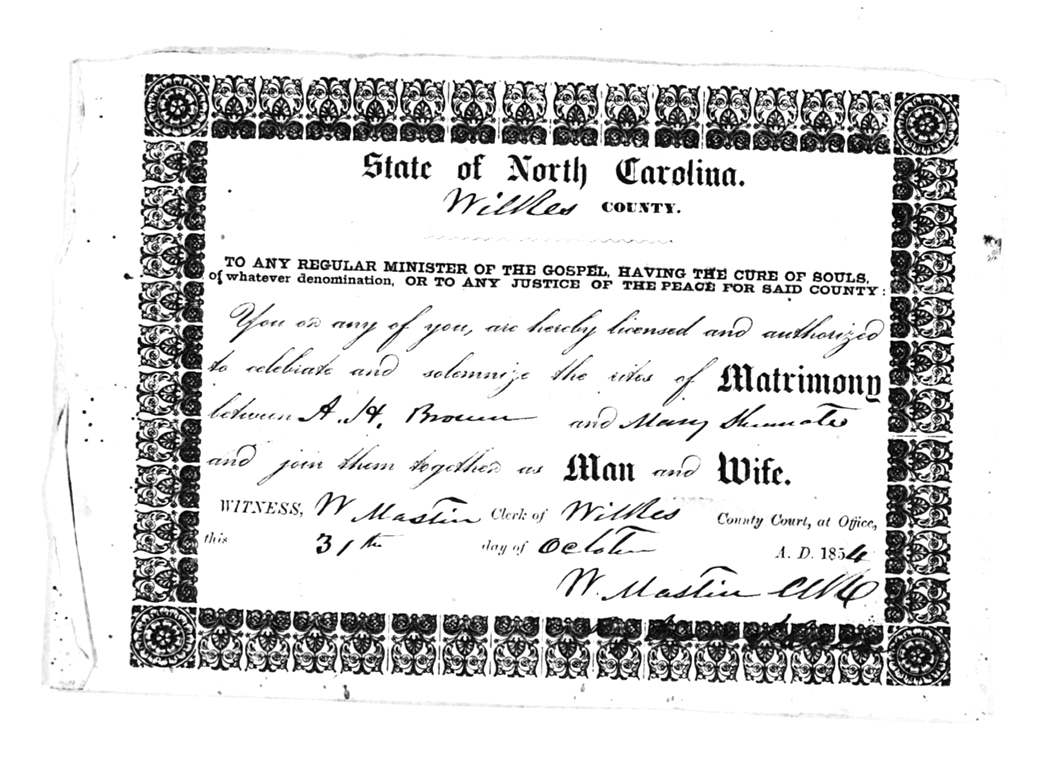 State of North Carolina.
Wilkes COUNTY.
TO ANY REGULAR MINISTER OF THE GOSPEL, HAVING THE CURE OF SOULS,
of whatever denomination, OR TO ANY JUSTICE OF THE PEACE FOR SAID COUNTY:
You or any of you, are hereby licensed and authorized
to celebrate and solemnize the rites of Matrimony
between A. H. Brown and Mary Shumate
and join them together as Man and Wife.
WITNESS, W Mastin Clerk of Wilkes County Court, at Office,
this 31th day of October A. D. 1854
W. Mastin Clk